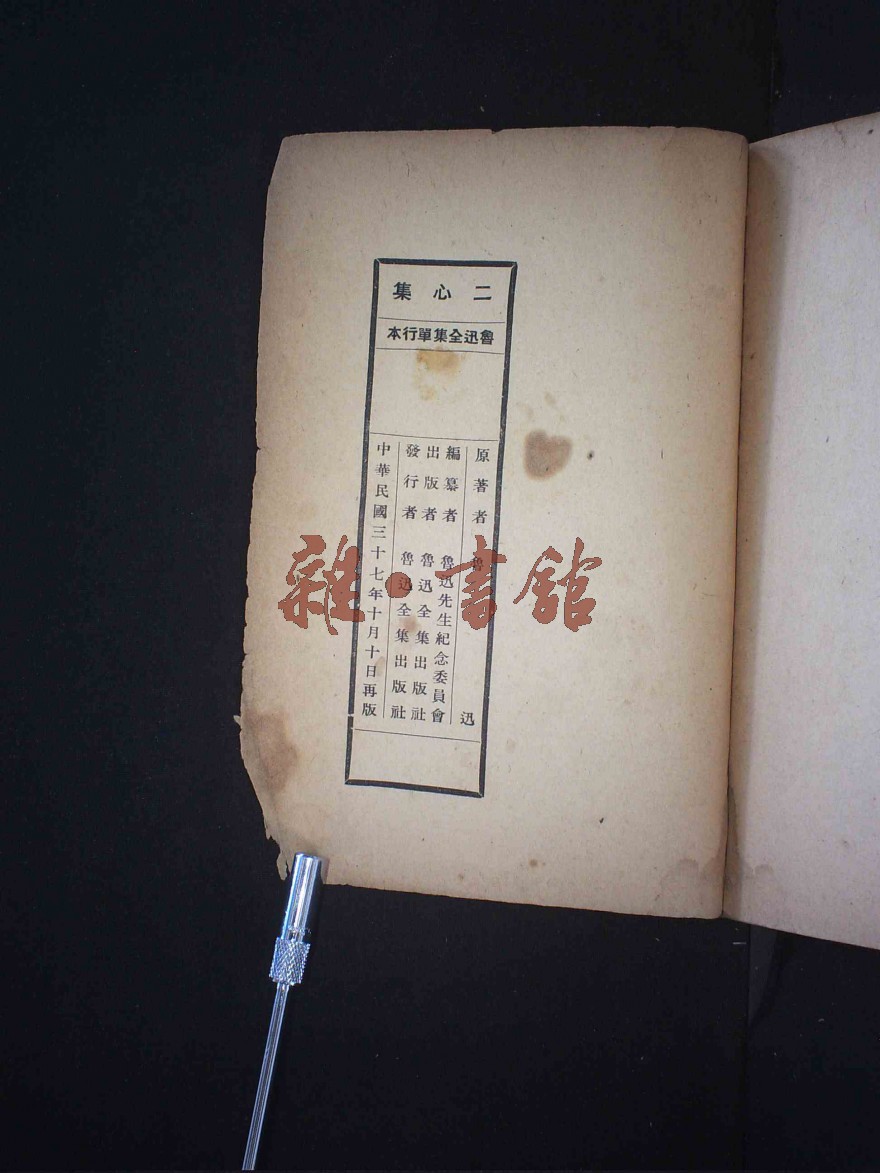 二心集
魯迅全集單行本
原著者 魯迅
編纂者 魯迅先生紀念委員會
出版者 魯迅全集出版社
發行者 魯迅全集出版社
中華民國三十七年十月十日再版
雜·書館